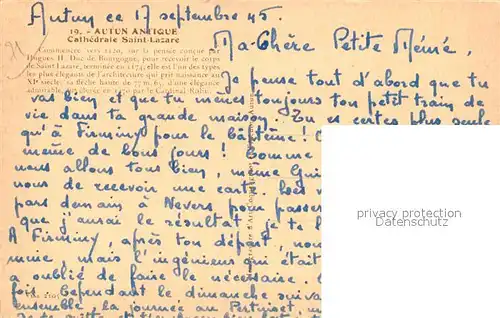 Autun ce 17 septembre 45.
19. - AUTUN ANTIQUE
Cathédrale Saint-Lazare
Commencée vers 1120, sur la pensée conçue par
Hugues II, Duc de Bourgogne, pour recevoir le corps
de Saint Lazare, terminée en 1178, elle est l'un des types
les plus élégants de l'architecture qui prit naissance au
XIe siècle; sa flèche haute de 77 m.
Ma Chère Petite Mémé,
Je pense tout d'abord que tu
vas bien et que tu mènes toujours ton petit train de
vie dans ta grande maison. Tu es certes plus seule
qu'à Firminy pour le baptême!
même de bons jours! Comme
nous allons tous bien, même
nous de recevoir une carte.
pars demain à Nevers pour passer
que j'aurai le résultat je te
A Firminy, après ton départ, nous
mie, mais l'ingénieur qui était
a oublié de faire le nécessaire.
fois. Cependant le dimanche
ensemble, la journée au Pertuiset,
privacy protection
Datenschutz